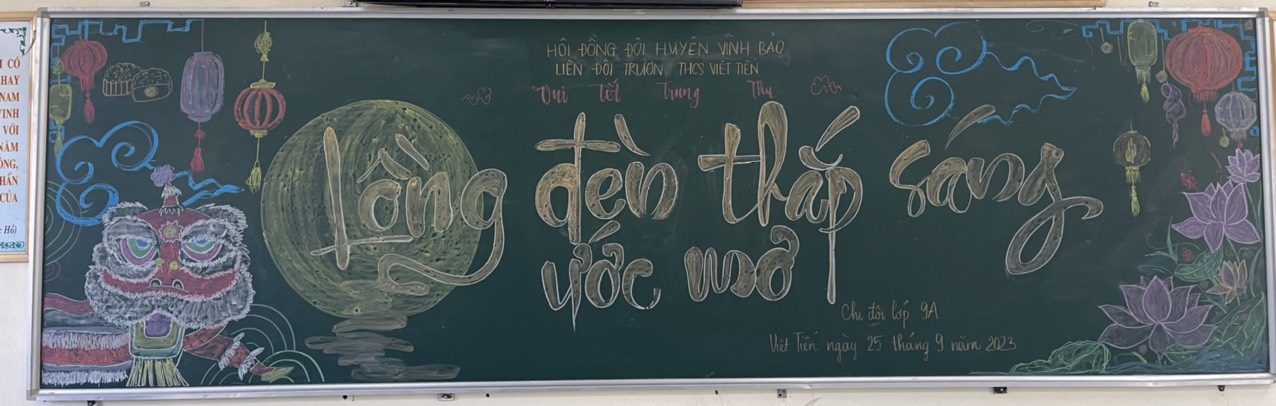 HỘI ĐỒNG ĐỘI HUYỆN VĨNH BẢO
LIÊN ĐỘI TRƯỜN THCS VIỆT TIẾN
Vui Tết Trung Thu
Lồng đèn thắp sáng
ước mơ
Chi đội lớp 9A
Việt Tiến ngày 25 tháng 9 năm 2023
CÓ
HAY
NAM
VINH
VỚI
NĂM
CỦA
Hồ)